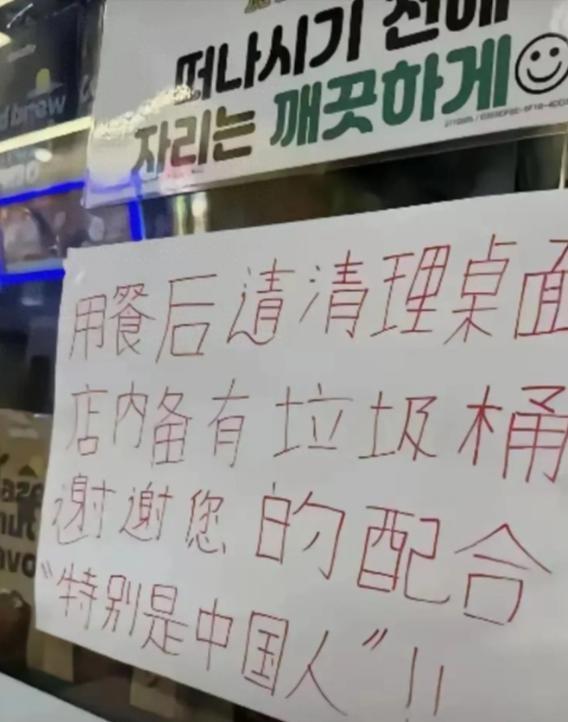 떠나시기 전에
자리는 깨끗하게
d brew
用餐后请清理桌面
店内备有垃圾桶
谢谢您的配合
“特别是中国人”!!